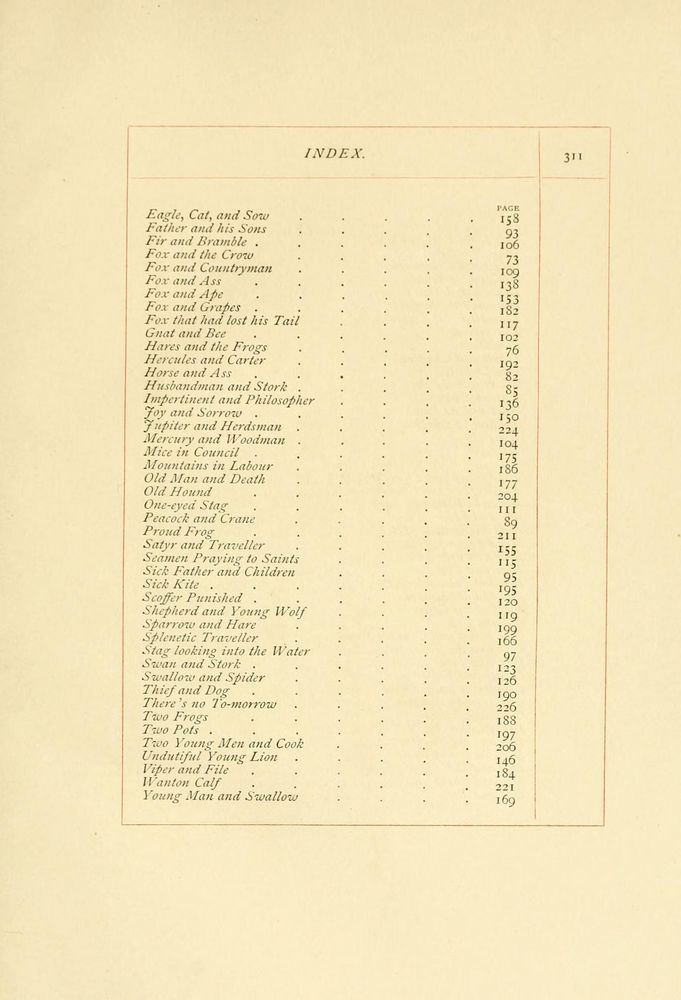 INDEX. 311
PAGE
Eagle, Cat, and Sow . . . . . 158
Father and his Sons . . . . . 93
Fir and Bramble . . . . . . 106
Fox and the Crow . . . . . 73
Fox and Countryman . . . . . 109
Fox and Ass . . . . . . 138
Fox and Ape . . . . . . 153
Fox and Grapes . . . . . . 182
Fox that had lost his Tail . . . . 117
Gnat and Bee . . . . . . 102
Hares and the Frogs . . . . . 76
Hercules and Carter . . . . . 192
Horse and Ass . . . . . . 82
Husbandman and Stork . . . . . 85
Impertinent and Philosopher . . . . 136
Joy and Sorrow . . . . . . 150
Jupiter and Herdsman . . . . . 224
Mercury and Woodman . . . . . 104
Mice in Council . . . . . . 175
Mountains in Labour . . . . . 186
Old Man and Death . . . . . 177
Old Hound . . . . . . 204
One-eyed Stag . . . . . . 111
Peacock and Crane . . . . . 89
Proud Frog . . . . . . 211
Satyr and Traveller . . . . . 155
Seamen Praying to Saints . . . . 115
Sick Father and Children . . . . 95
Sick Kite . . . . . . . 195
Scoffer Punished . . . . . . 120
Shepherd and Young Wolf . . . . 119
Sparrow and Hare . . . . . 199
Splenetic Traveller . . . . . 166
Stag looking into the Water . . . . 97
Swan and Stork . . . . . . 123
Swallow and Spider . . . . . 126
Thief and Dog . . . . . . 190
There's no To-morrow . . . . . 226
Two Frogs . . . . . . 188
Two Pots . . . . . . . 197
Two Young Men and Cook . . . . 206
Undutiful Young Lion . . . . . 146
Viper and File . . . . . . 184
Wanton Calf . . . . . . 221
Young Man and Swallow . . . . 169